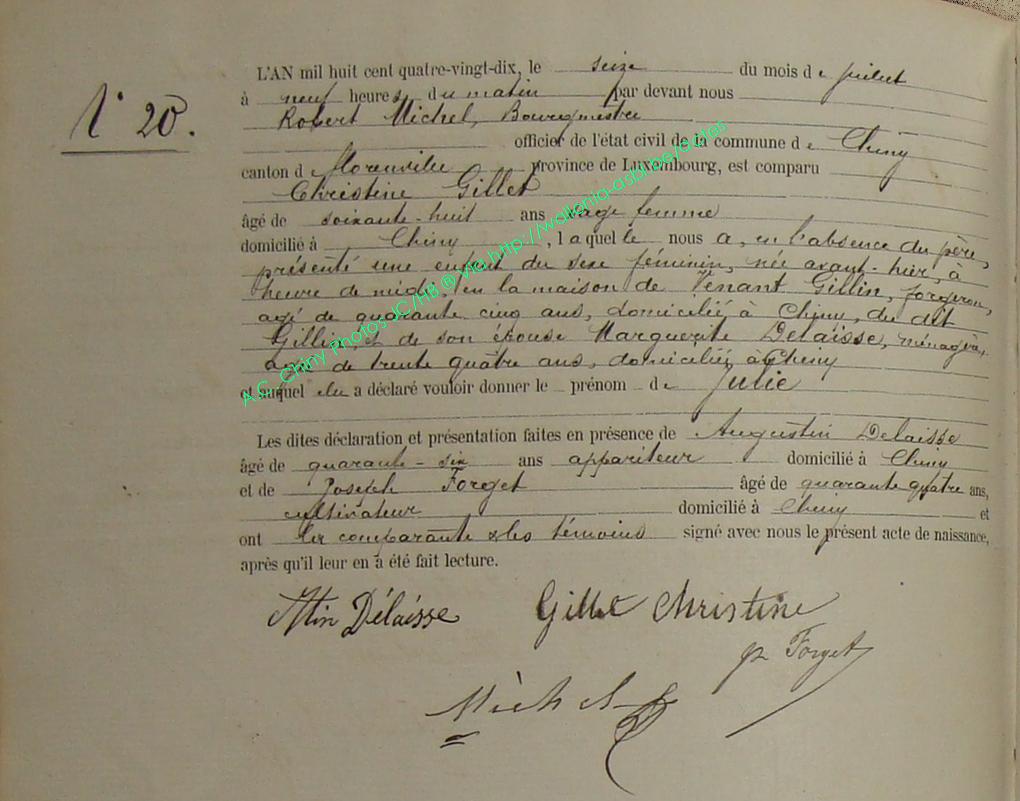 N° 20.
L'AN mil huit cent quatre-vingt-dix, le seize du mois de juillet
à neuf heures du matin par devant nous
Robert Michel, Bourgmestre
officier de l'état civil de la commune de Chiny
canton d Florenville province de Luxembourg, est comparu
Christine Gillet
âgé de soixante-huit ans sage femme
domicilié à Chiny, laquelle nous a, en l'absence du père,
présenté une enfant du sexe féminin, née avant-hier, à
heure de midi, en la maison de Venant Gillin, forgeron,
agé de quarante cinq ans, domiciliée à Chiny, du dit
Gillin, et de son épouse Marguerite Delaisse, ménagère,
agée de trente quatre ans, domiciliée à Chiny
et auquel elle a déclaré vouloir donner le prénom de Julie
Les dites déclaration et présentation faites en présence de Augustin Delaisse
âgé de quarante-six ans appariteur domicilié à Chiny
et de Joseph Forget âgé de quarante quatre ans,
cultivateur domicilié à Chiny et
ont la comparante & les témoins signé avec nous le présent acte de naissance,
après qu'il leur en a été fait lecture.
Atin Délaisse Gillet Christine
Forget
Michel
A.C. Chiny Photos JC/HB ® via http://wallonia-asbl.be/actes